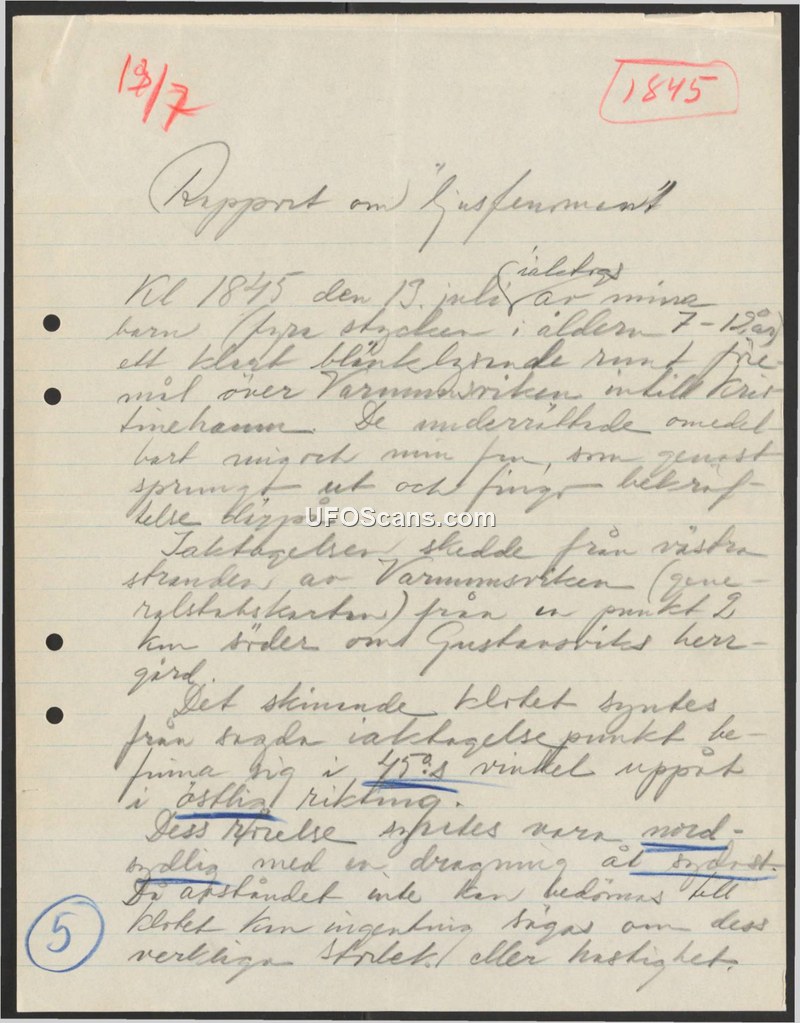 19/7
1845
Rapport om "ljusfenomen"
iakttogs
Kl 1845 den 19. juli av mina
barn (fyra stycken i åldern 7-12 år)
ett klart blänk lysande runt före-
mål över Varnumsviken intill Kris-
tinehamn. De underrättade omedel-
bart mig och min fru, som genast
sprungo ut och fingo bekräf-
telse
UFOScans.com
Iakttagelsen skedde från västra
stranden av Varnumsviken (gene-
ralstabskartan) från en punkt 2
km söder om Gustavsviks herr-
gård.
Det skinande klotet syntes
från sagda iakttagelsepunkt be-
finna sig i 45°:s vinkel uppåt
i östlig riktning.
Dess rörelse syntes vara nord-
sydlig med en dragning åt sydost.
Då avståndet inte kan bedömas till
klotet kan ingenting sägas om dess
verkliga storlek eller hastighet.
5